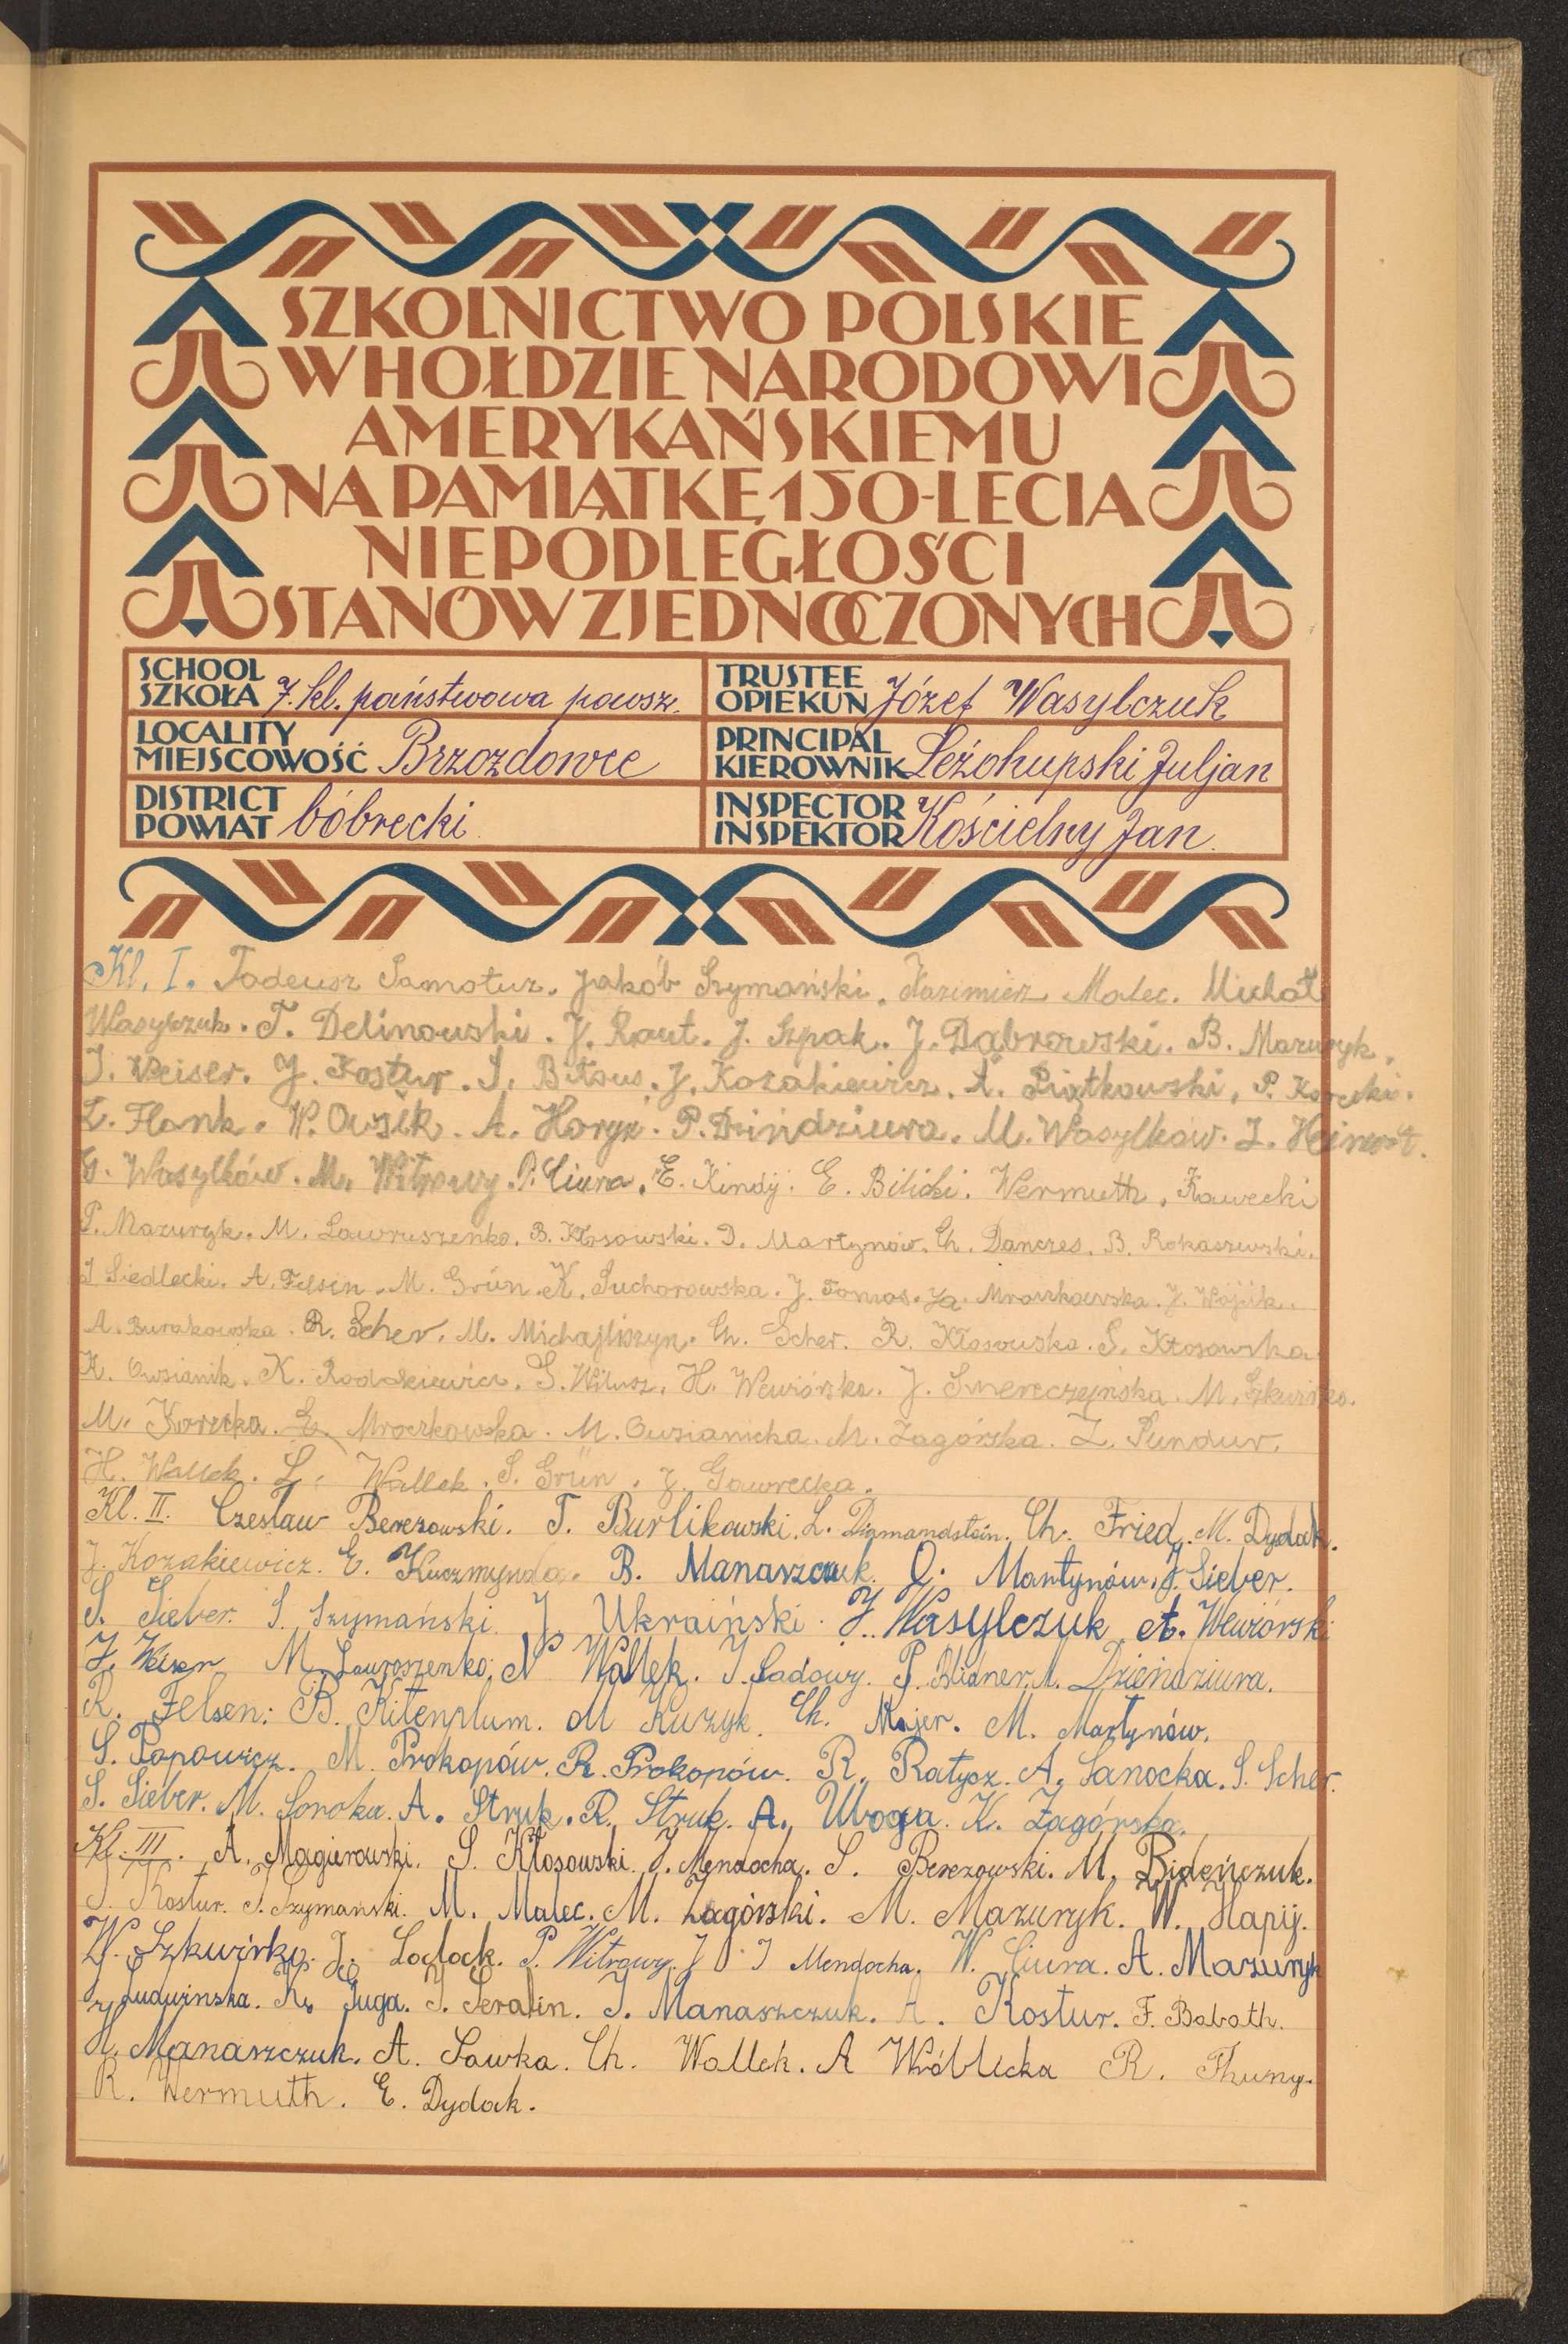 SZKOLNICTWO POLSKIE
W HOŁDZIE NARODOWI
AMERYKAŃSKIEMU
NA PAMIĄTKĘ 150-LECIA
NIEPODLEGŁOŚCI
STANÓW ZJEDNOCZONYCH
SCHOOL
SZKOŁA 7. kl. państwowa powsz.
TRUSTEE
OPIEKUN Józef Wasylczuk
LOCALITY
MIEJSCOWOŚĆ Brzozdowce
PRINCIPAL
KIEROWNIK Leżohupski Juljan
DISTRICT
POWIAT bóbrecki
INSPECTOR
INSPEKTOR Kościelny Jan.
Kl. I. Tadeusz Samotur. Jakób Szymański. Kazimierz Malec. Michał
Wasylczuk. T. Delinowski. J. Raut. J. Szpak. J. Dąbrowski. B. Mazuryk.
J. Weiser. J. Kostur. J. Bitous. J. Kozakiewicz. A. Piątkowski. P. Korecki.
L. Flank. W. Owsik. A. Horyń. P. Dzindziura. M. Wasylkow. J.
G. Wasylków. M. Witrowy. P. Ciura. E. Kindij. E. Bilicki. Wermuth. Kawecki
P. Mazuryk. M. Lawruszenko. B. Kłosowski. D. Martynów. Ch. Danczes. B. Rokaszewski.
J. Siedlecki. A. Felsin. M. Grün. K. Suchorowska. J. Tomas. Ja. Mroczkowska. J. Wójcik.
A. Burakowska. R. Scher. M. Michajliszyn. Ch. Scher. R. Kłosowska. S. Kłosowska
K. Owsianik. K. Rodakiewicz. S. Witusz. H. Wewiórska. J. Smereczyńska. M. Szkwirko.
M. Korecka. E. Mroczkowska. M. Owsianicka. M. Zagórska. Z. Sundur.
H. Wallek. L. Wallek. S. Grün. J. Gawrecka.
Kl. II. Czesław Berezowski. T. Burlikowski. L. Diamandstein. Ch. Fried. M. Dydak.
J. Kozakiewicz. E. Kuczmynda. B. Manaszczuk. O. Martynów. J. Sieber.
S. Sieber. S. Szymański. J. Ukraiński. J. Wasylczuk A. Wewiórski
J. Weiser M. Lawroszenko. N Wallek. J. Sadowy. P. Blidner. A. Dzieńdziura.
R. Felsen. B. Kitenplum. M Kuzyk. Ch. Majer. M. Martynów.
S. Popowicz. M. Prokopów. R. Prokopów. R. Ratycz. A. Sanocka. S. Scher.
S. Sieber. M. Soroka. A. Struk. R. Struk. A. Uloga. K. Zagórska.
Kl. III. A. Magierowski. S. Kłosowski. J. Mendocha. S. Berezowski. M. Bideńczuk.
J. Kostur. J. Szymański. M. Malec. M. Zagórski. M. Mazuryk. W. Hapij.
W. Szkwirko. J. Lodock. P. Witrowy. J Mendocha. W. Ciura. A. Mazuryk
J. Ludwinska. K. Juga. J. Serafin. J. Manaszczuk. A. Kostur. F. Babath.
H. Manaszczuk. A. Sawka. Ch. Wallek. A Wróblicka R. Thuny.
R. Wermuth. E. Dydak.